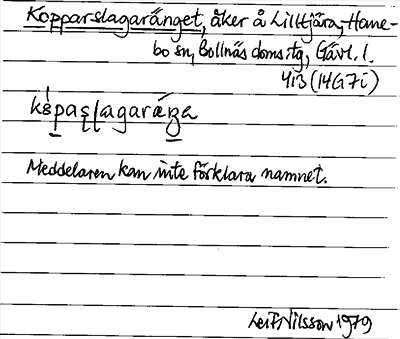 Kopparslagaränget, åker å Lilltjära, Hane-
bo sn, Bollnäs doms:tg, Gävl. l.
413 (14G7i)
Meddelaren kan inte förklara namnet.
Leif Nilsson 1979